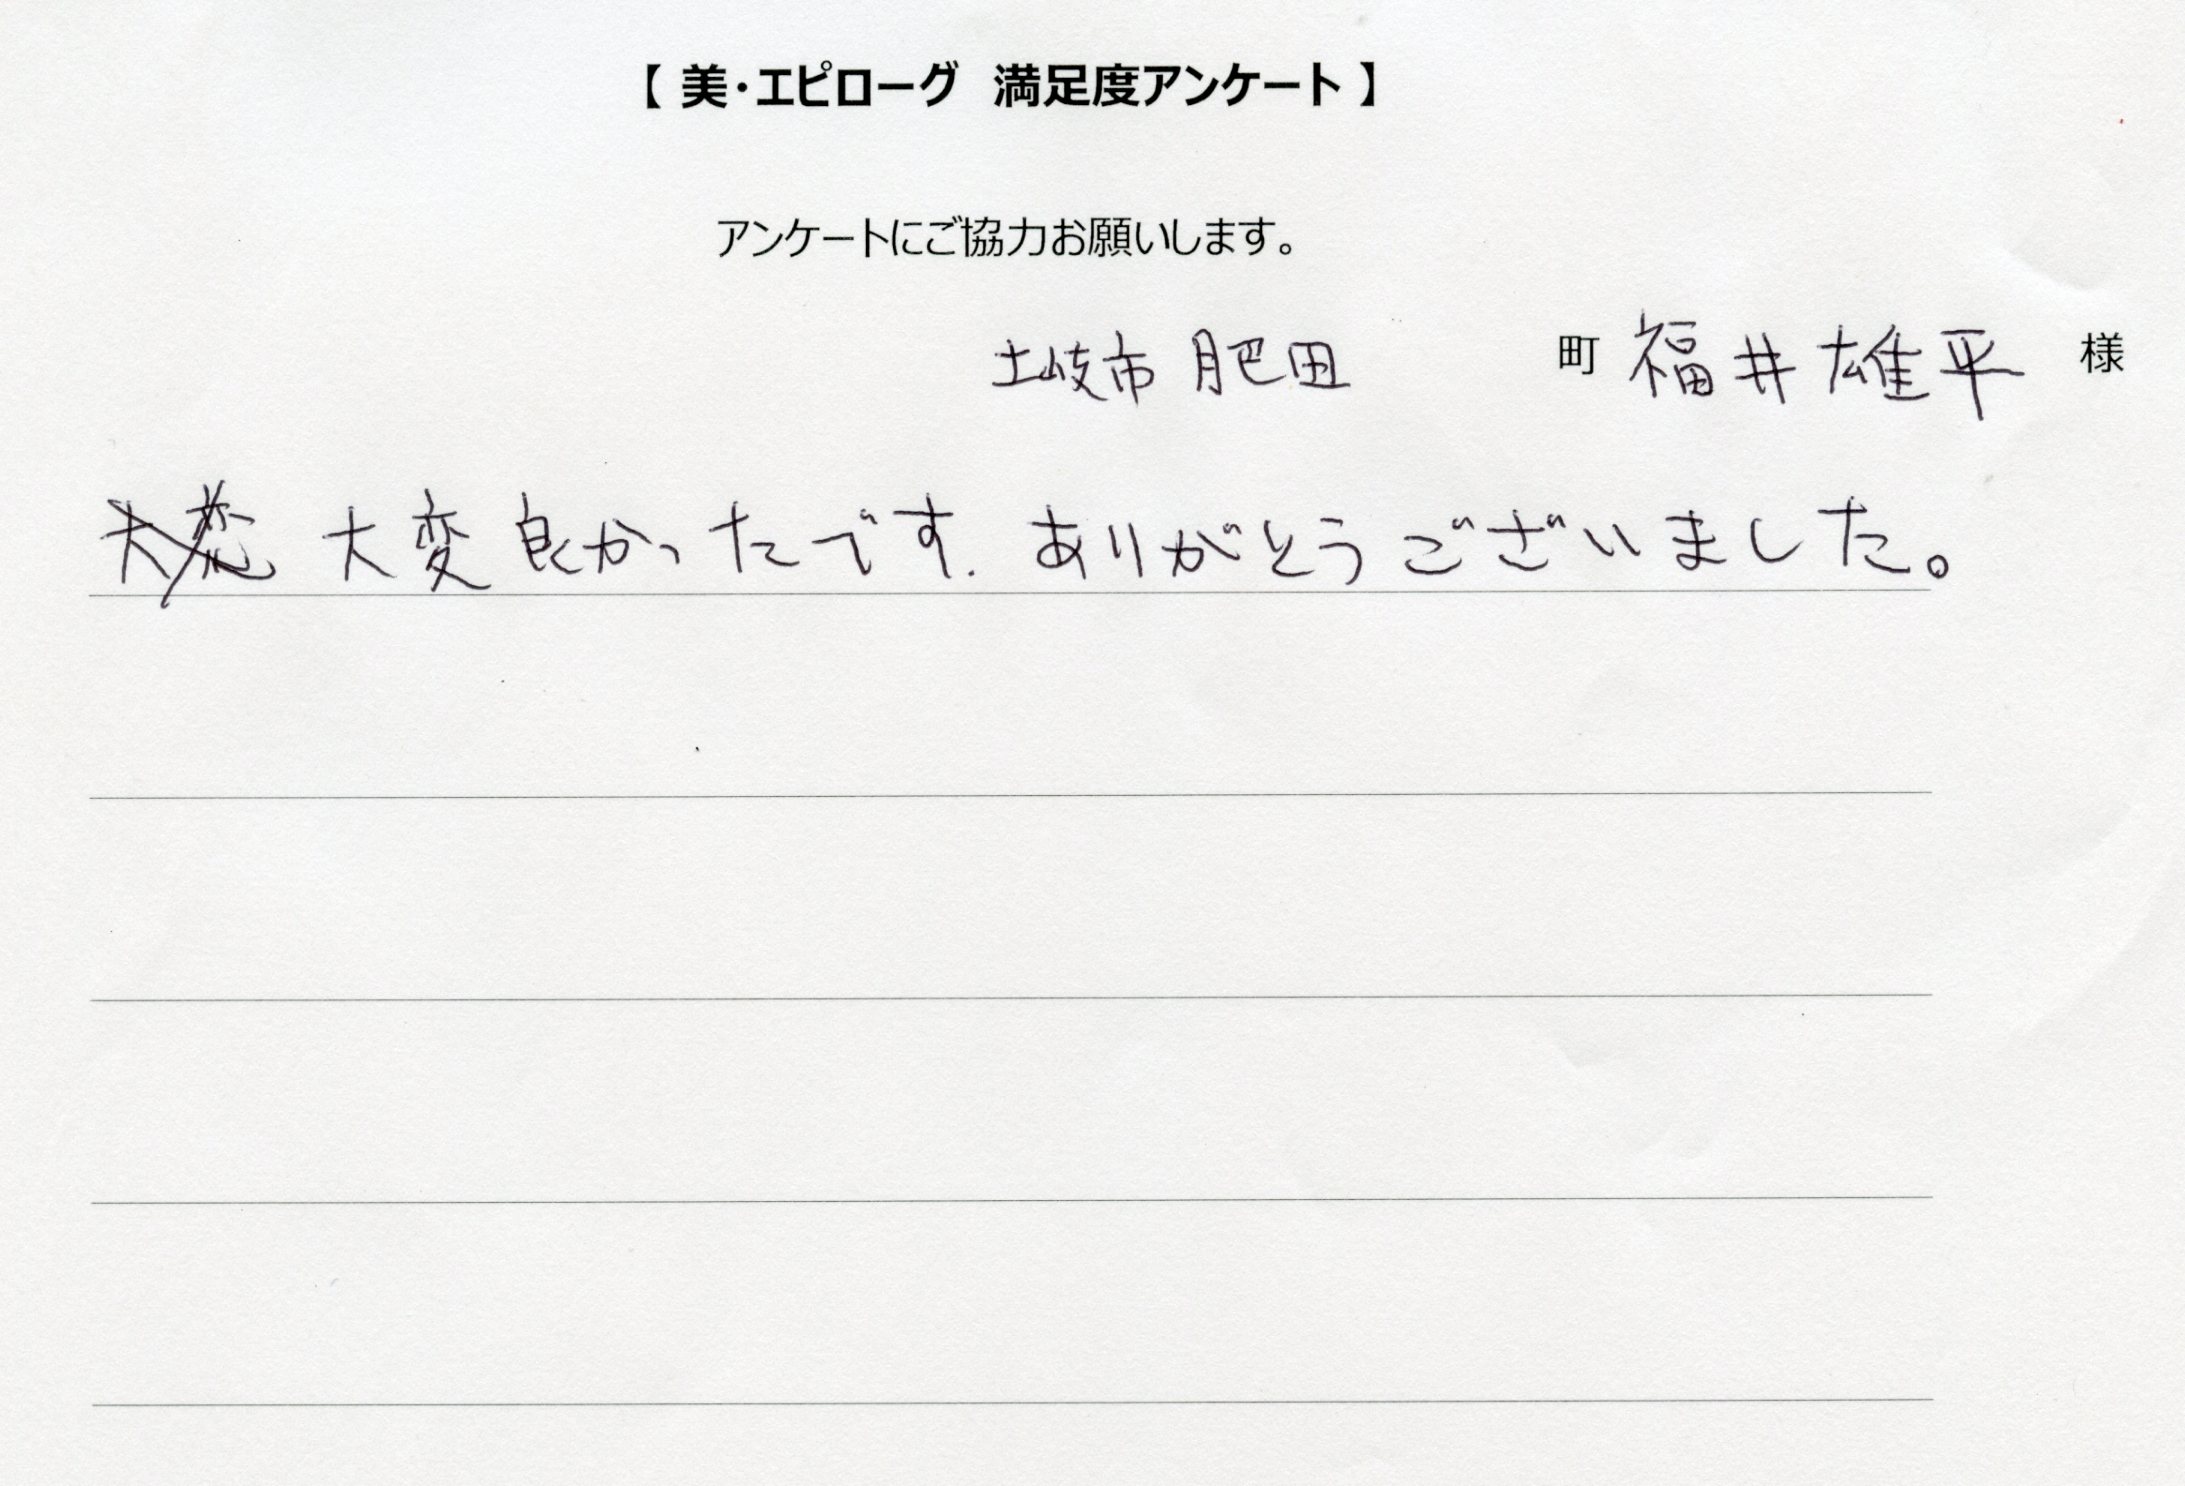 【 美・エピローグ 満足度アンケート 】
アンケートにご協力お願いします。
土岐市 肥田 町 福井雄平 様
大変良かったです. ありがとうございました。